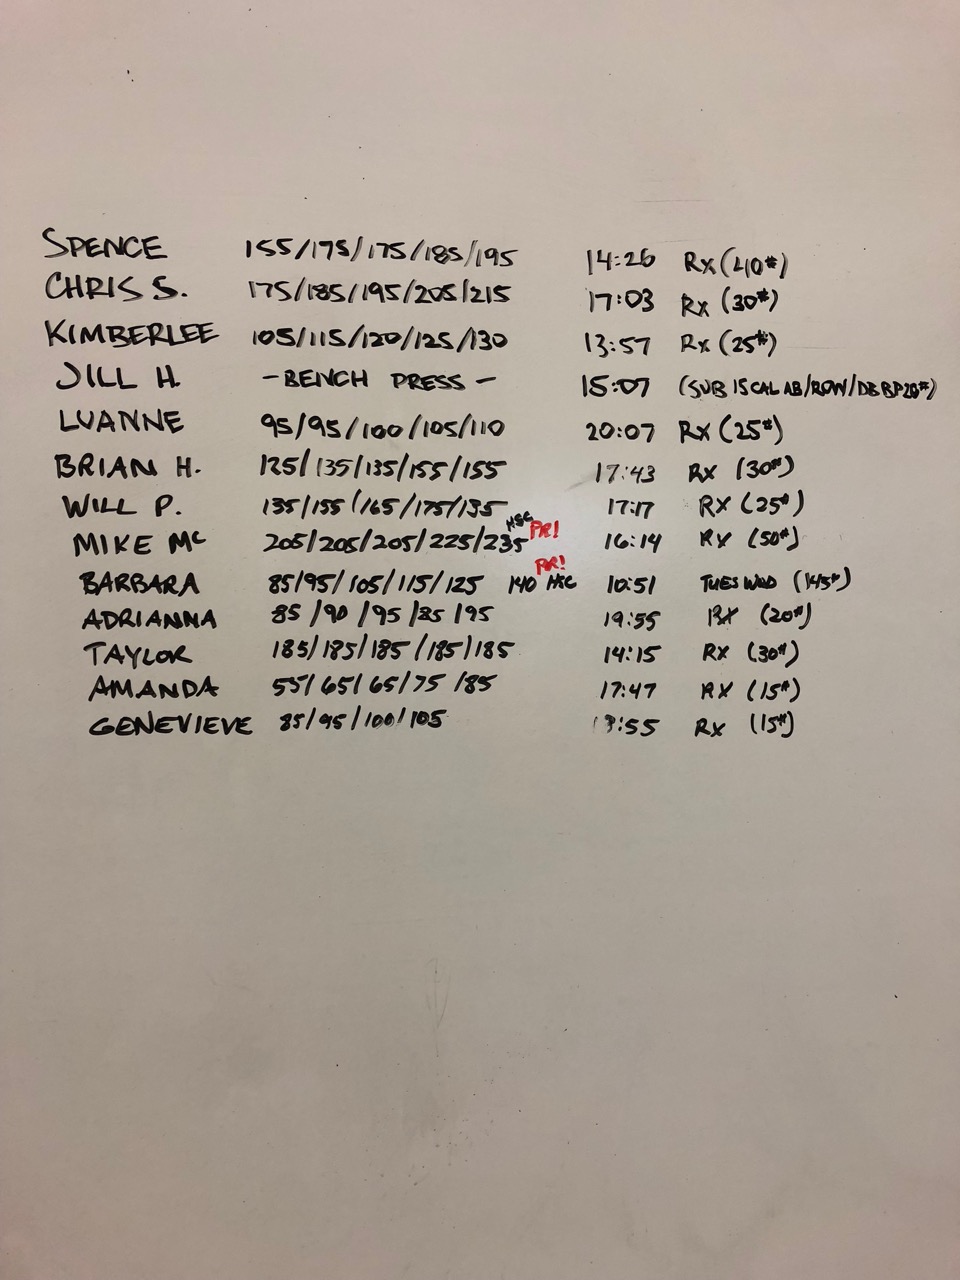 SPENCE 155/175/175/185/195 14:26 RX (40#)
CHRIS S. 175/185/195/205/215 17:03 RX (30#)
KIMBERLEE 105/115/120/125/130 13:57 RX (25#)
JILL H. -BENCH PRESS- 15:07 (SUB 15 CAL AB/ROW/DB BP 20#)
LUANNE 95/95/100/105/110 20:07 RX (25#)
BRIAN H. 125/135/135/155/155 17:43 RX (30#)
WILL P. 135/155/165/175/135 17:17 RX (25#)
MIKE MC 205/205/205/225/235 HSC PR! 16:14 RX (50#)
BARBARA 85/95/105/115/125 140 HSC PR! 10:51 TUES WOD (145#)
ADRIANNA 85/90/95/85/95 19:55 RX (20#)
TAYLOR 185/185/185/185/185 14:15 RX (30#)
AMANDA 55/65/65/75/85 17:47 RX (15#)
GENEVIEVE 85/95/100/105 RX (15#)